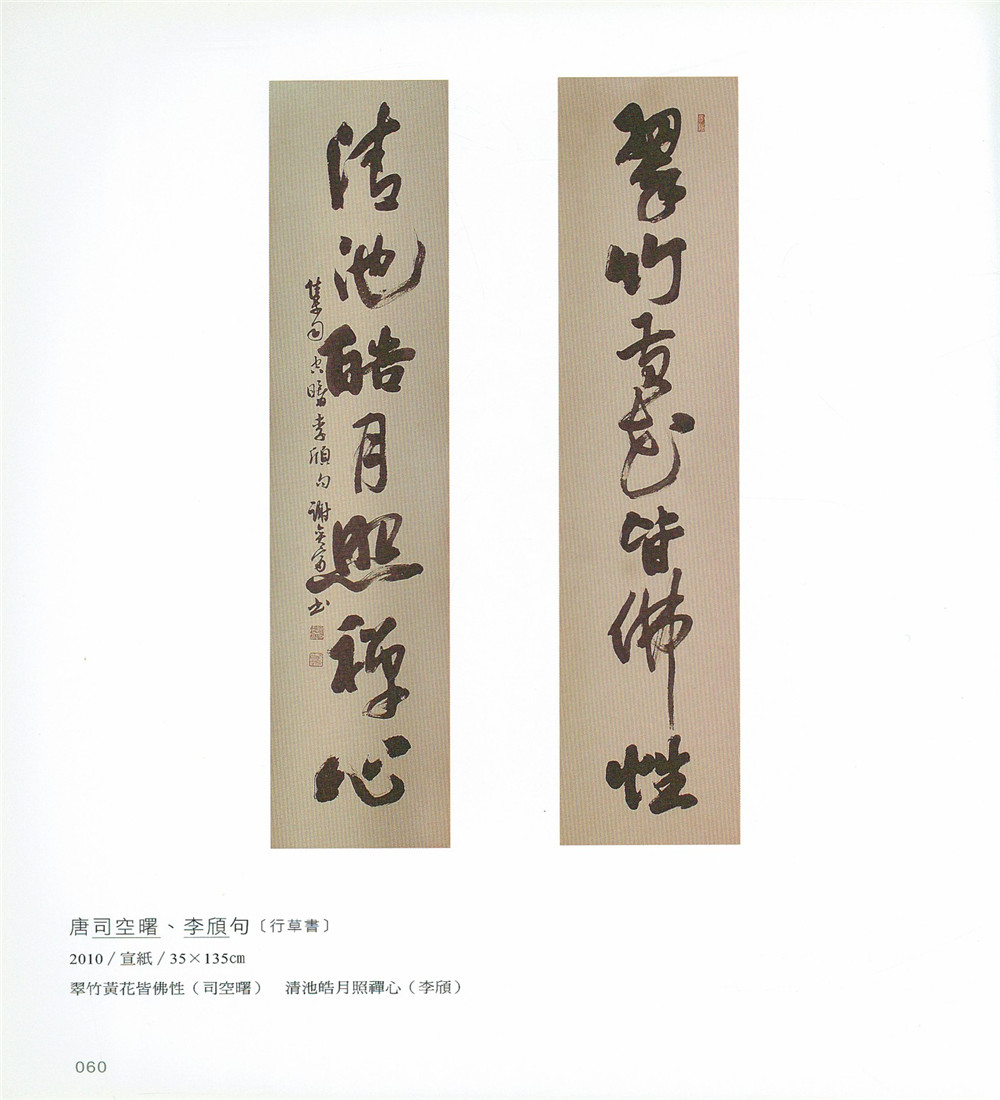 翠竹黃花皆佛性
清池皓月照禪心
集司空曙李頎句 謝季宸書
唐司空曙、李頎句〔行草書〕
2010 / 宣紙 / 35×135㎝
翠竹黃花皆佛性（司空曙）　清池皓月照禪心（李頎）
060